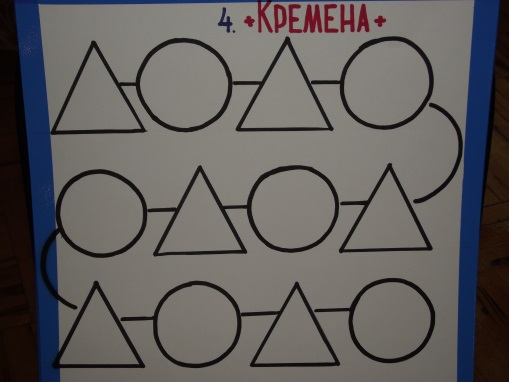 4. +КРЕМЕНА+